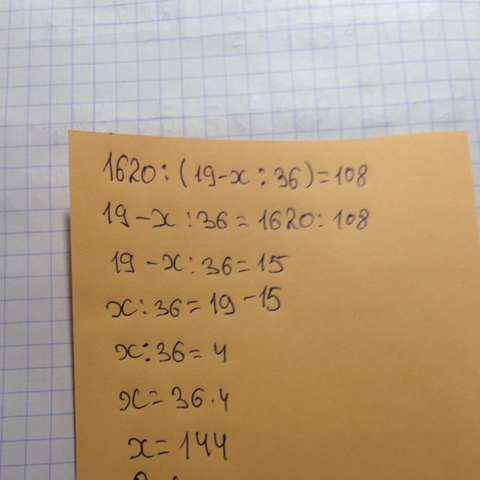 1620:(19-x:36)=108
19-x:36=1620:108
19-x:36=15
x:36=19-15
x:36=4
x=36·4
x=144